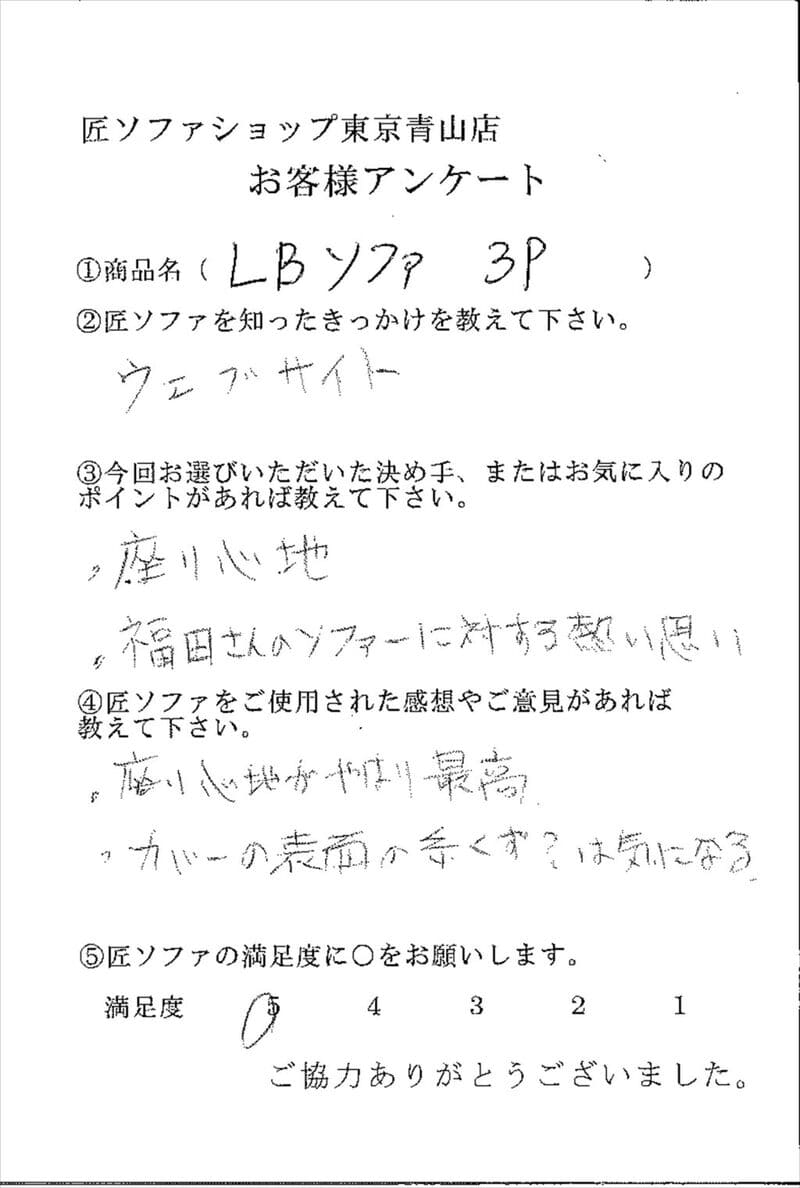 匠ソファショップ東京青山店
お客様アンケート
①商品名（ LBソファ 3P ）
②匠ソファを知ったきっかけを教えて下さい。
ウェブサイト
③今回お選びいただいた決め手、またはお気に入りの
ポイントがあれば教えて下さい。
・座り心地
・福田さんのソファーに対する熱い思い
④匠ソファをご使用された感想やご意見があれば
教えて下さい。
・座り心地がやはり最高
・カバーの表面の糸くず？は気になる
⑤匠ソファの満足度に○をお願いします。
満足度 5 4 3 2 1
ご協力ありがとうございました。